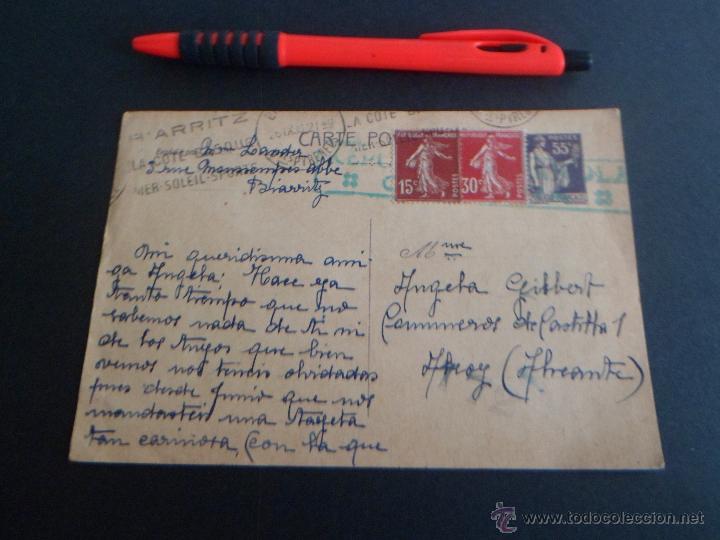 BIARRITZ
LA CÔTE BASQUE
MER·SOLEIL·SPORTS
CARTE POS
LA CÔTE BA
MER·SOLEIL·SPORTS
Lander
3 rue
Biarritz
15c POSTES
30c POSTES
POSTES 55c
Mi queridisima ami-
ga Angela; Hace ya
tanto tiempo que no
sabemos nada de ti ni
de los tuyos que bien
vemos nos teneis olvidadas
pues desde Junio que nos
mandasteis una tarjeta
tan cariñosa, (con la que
Mme
Angela Gisbert
Commeros de Castilla 1
Alcoy (Alicante)
www.todocoleccion.net